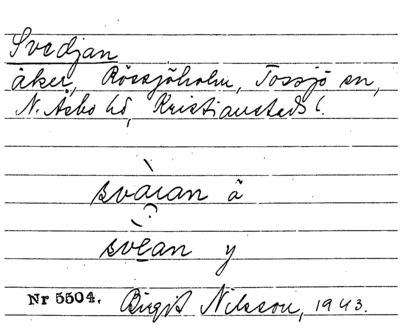 Svedjan
åker, Rössjöholm, Tossjö sn,
N. Åsbo hd, Kristianstads l.
svàian ä
svèan y
Nr 5504. Birgit Nilsson, 1943.